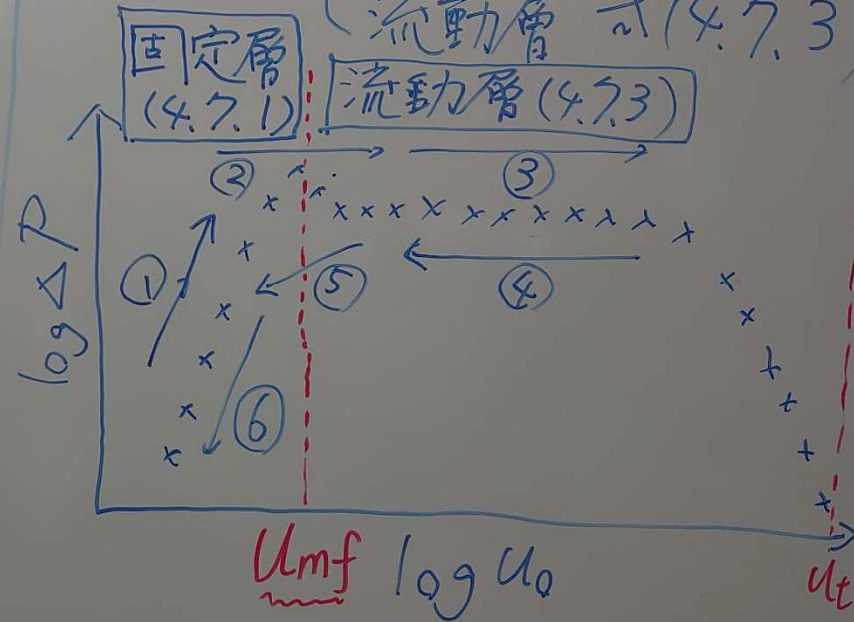 (流動層 式(4.7.3)
固定層
(4.7.1)
流動層(4.7.3)
②
③
①
⑤
④
⑥
log ΔP
Umf
log u0
ut